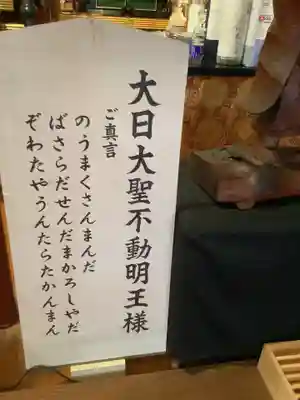 大日大聖不動明王様
ご真言
のうまくさんまんだ
ばさらだせんだまかろしやだ
そわたやうんたらたかんまん